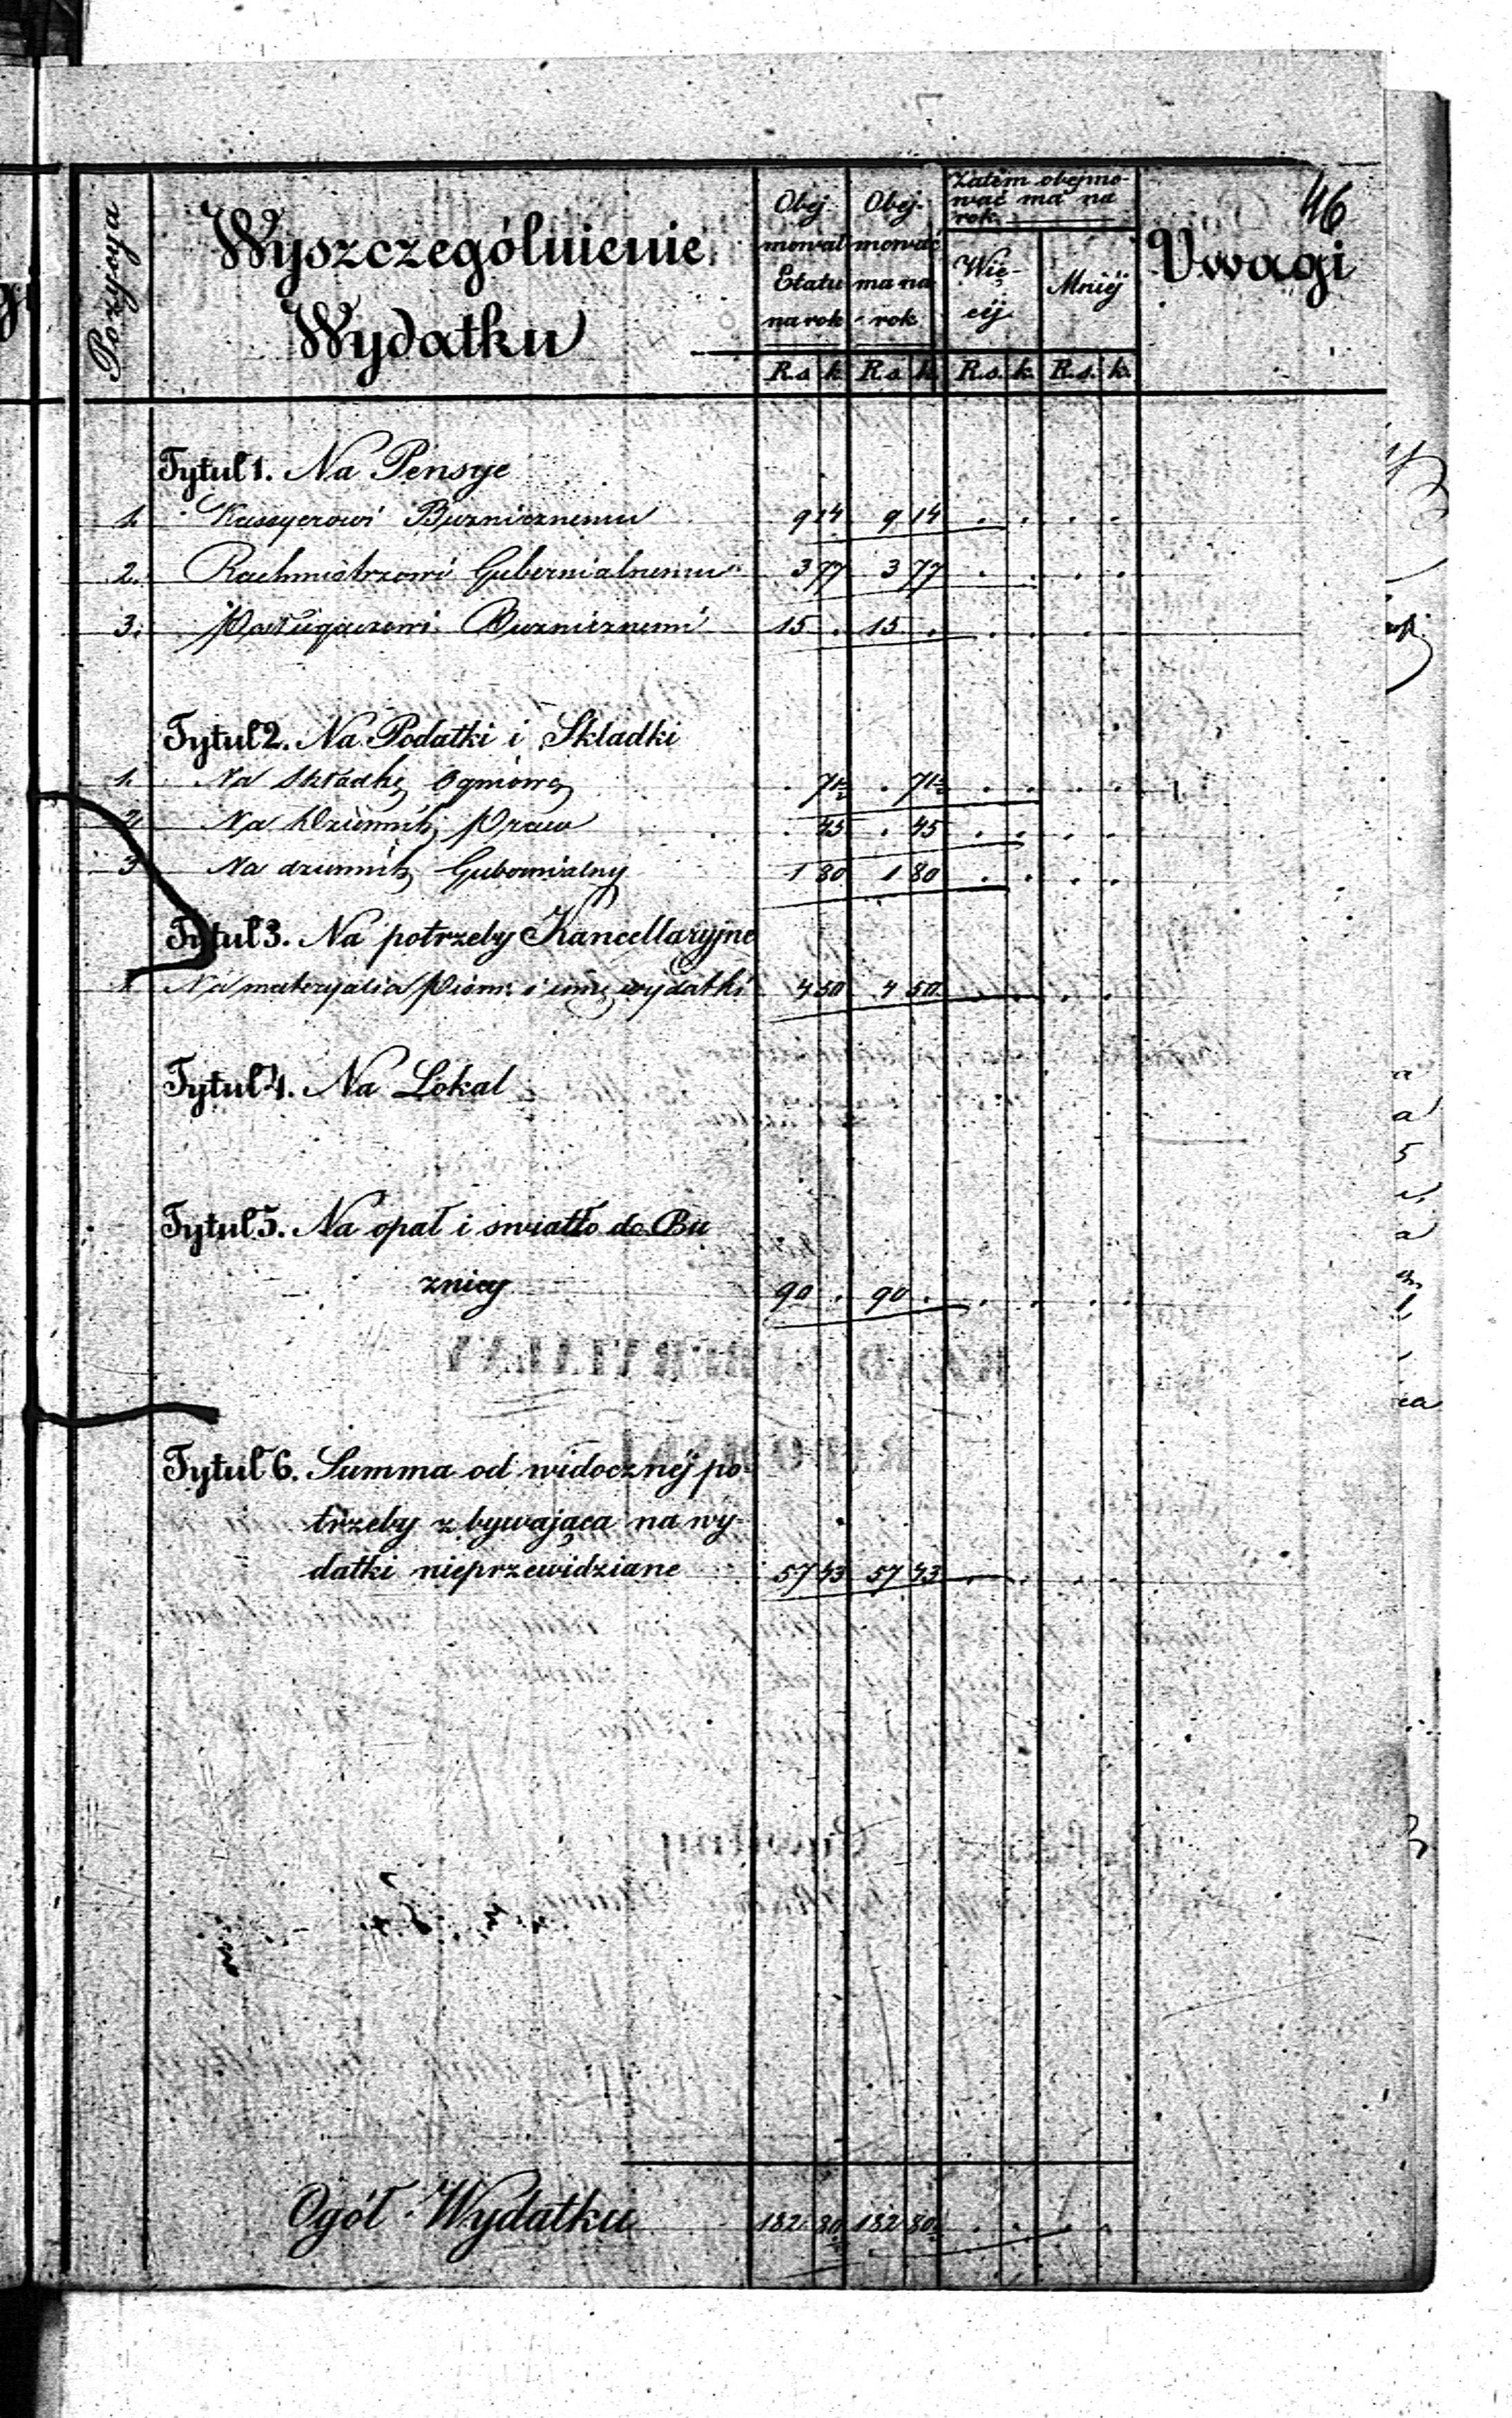 46
Pozycya
Wyszczególnienie
Wydatku
Obej-
mował
Etatu
na rok
Obej-
mować
ma na
rok
Zatem obejmo-
wać ma na
rok
Wię-
céj
Mniéj
Uwagi
R.s. k. R.s. k. R.s. k. R.s. k.
Tytuł 1. Na Pensye
1. Kassyerowi Buznicznemu 9 14 9 14 . . . .
2. Rachmistrzowi Gubernialnemu 3 77 3 77 . . . .
3. Posługaczowi Buznicznemu 15 . 15 . . . . .
Tytuł 2. Na Podatki i Składki
1. Na Składkę Ogniową . 71½ . 71½ . . . .
2. Na Dziennik Praw . 45 . 45 . . . .
3 Na dziennik Gubernialny 1 80 1 80 . . . .
Tytuł 3. Na potrzeby Kancellaryjne
1. Na materyalia Piśm: i inne wydatki 4 50 4 50 . . . .
Tytuł 4. Na Lokal
Tytuł 5. Na opał i swiatło do Bu
znicy 90 . 90 . . . . .
Tytuł 6. Summa od widocznéj po-
trzeby zbywająca na wy-
datki nieprzewidziane 57 43 57 43 . . . .
Ogół Wydatku 182 80½ 182 80½ . . . .